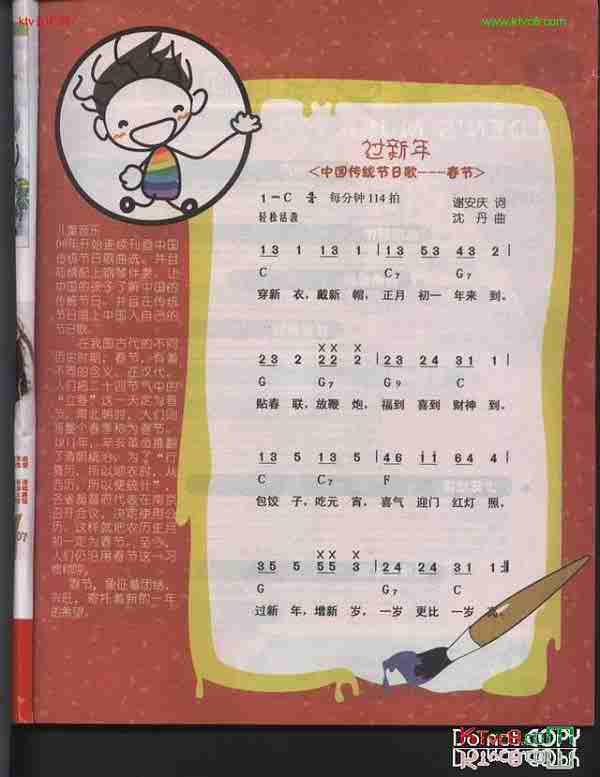 www.ktvc8.com
过新年
<中国传统节日歌---春节>
1=C 2/4 每分钟114拍 谢安庆 词
轻松活泼 沈丹 曲
1 3 1 3 1 3 1 | 1 3 5 3 4 3 2 |
C C7 G7
穿新衣，戴新帽，正月初一年来到。
2 3 2 2 2 2 2 | 2 3 2 4 3 1 1 |
G G7 G9 C
贴春联，放鞭炮，福到喜到财神到。
1 3 5 1 3 5 | 4 6 1 1 6 4 4 |
C C7 F
包饺子，吃元宵，喜气迎门红灯照，
3 5 5 5 5 3 | 2 4 2 4 3 1 1
G G7 C
过新年，增新岁，一岁更比一岁
儿童音乐
06年开始连续刊登中国
传统节日歌曲选。并且
中国的孩子了解中国的
传统节日。并且在传统
节日唱上中国人自己的
节日歌。
在我国古代的不同
历史时期，春节，有着
不同的含义。在汉代，
人们把二十四节气中的
“立春”这一天定为春
节。南北朝时，人们则
将整个春季称为春节。
1911年，辛亥革命推翻
了清朝统治，为了“行
夏历，所以顺农时，从
西历，所以便统计”，
各省都督府代表在南京
召开会议，决定使用公
历。这样就把农历正月
初一定为春节。至今，
人们仍沿用春节这一习
惯称呼。
春节，象征着团结、
兴旺，寄托着新的一年
的希望。
07
DO NOT COPY